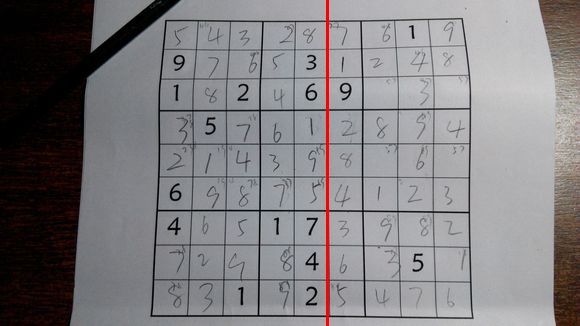 5 4 3 2 8 7 6 1 9
9 7 6 5 3 1 2 4 8
1 8 2 4 6 9 3
3 5 7 6 1 2 8 9 4
2 1 4 3 9 8 6
6 9 8 7 5 4 1 2 3
4 6 5 1 7 3 9 8 2
7 2 9 8 4 6 3 5 1
8 3 1 9 2 5 4 7 6